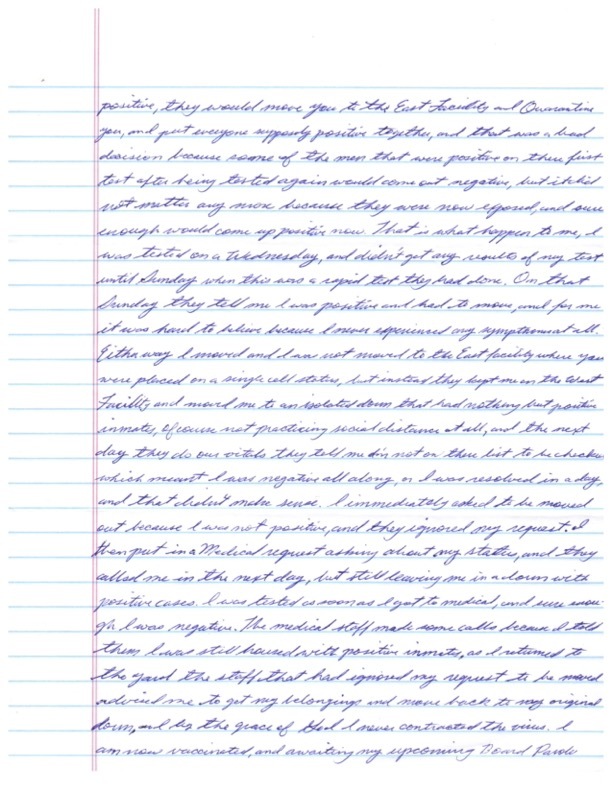 positive, they would move you to the East Facility and Quarantine
you, and put everyone supposly positive together, and that was a bad
decision because some of the men that were positive on there first
test after being tested again would come out negative, but it did
not matter any more because they were now exposed, and sure
enough would come up positive now. That is what happen to me, I
was tested on a Wednesday, and didn't get any results of my test
until Sunday when this was a rapid test they had done. On that
Sunday they tell me I was positive and had to move, and for me
it was hard to believe because I never experienced any symptoms at all.
Either way I moved and I am not moved to the East facility where you
were placed on a single cell status, but instead they kept me on the West
Facility and moved me to an isolated dorm that had nothing but positive
inmates, of course not practicing social distance at all, and the next
day they do our vitals they tell me I'm not on there list to be checked
which meant I was negative all along, or I was resolved in a day,
and that didn't make sense. I immediately asked to be moved
out because I was not positive, and they ignored my request. I
then put in a Medical request asking about my status, and they
called me in the next day, but still leaving me in a dorm with
positive cases. I was tested as soon as I got to medical, and sure enou-
gh I was negative. The medical staff made some calls because I told
them I was still housed with positive inmates, as I returned to
the yard the staff that had ignored my request to be moved
advised me to get my belongings and move back to my original
dorm, and by the grace of God I never contracted the virus. I
am now vaccinated, and awaiting my upcoming Board Parole